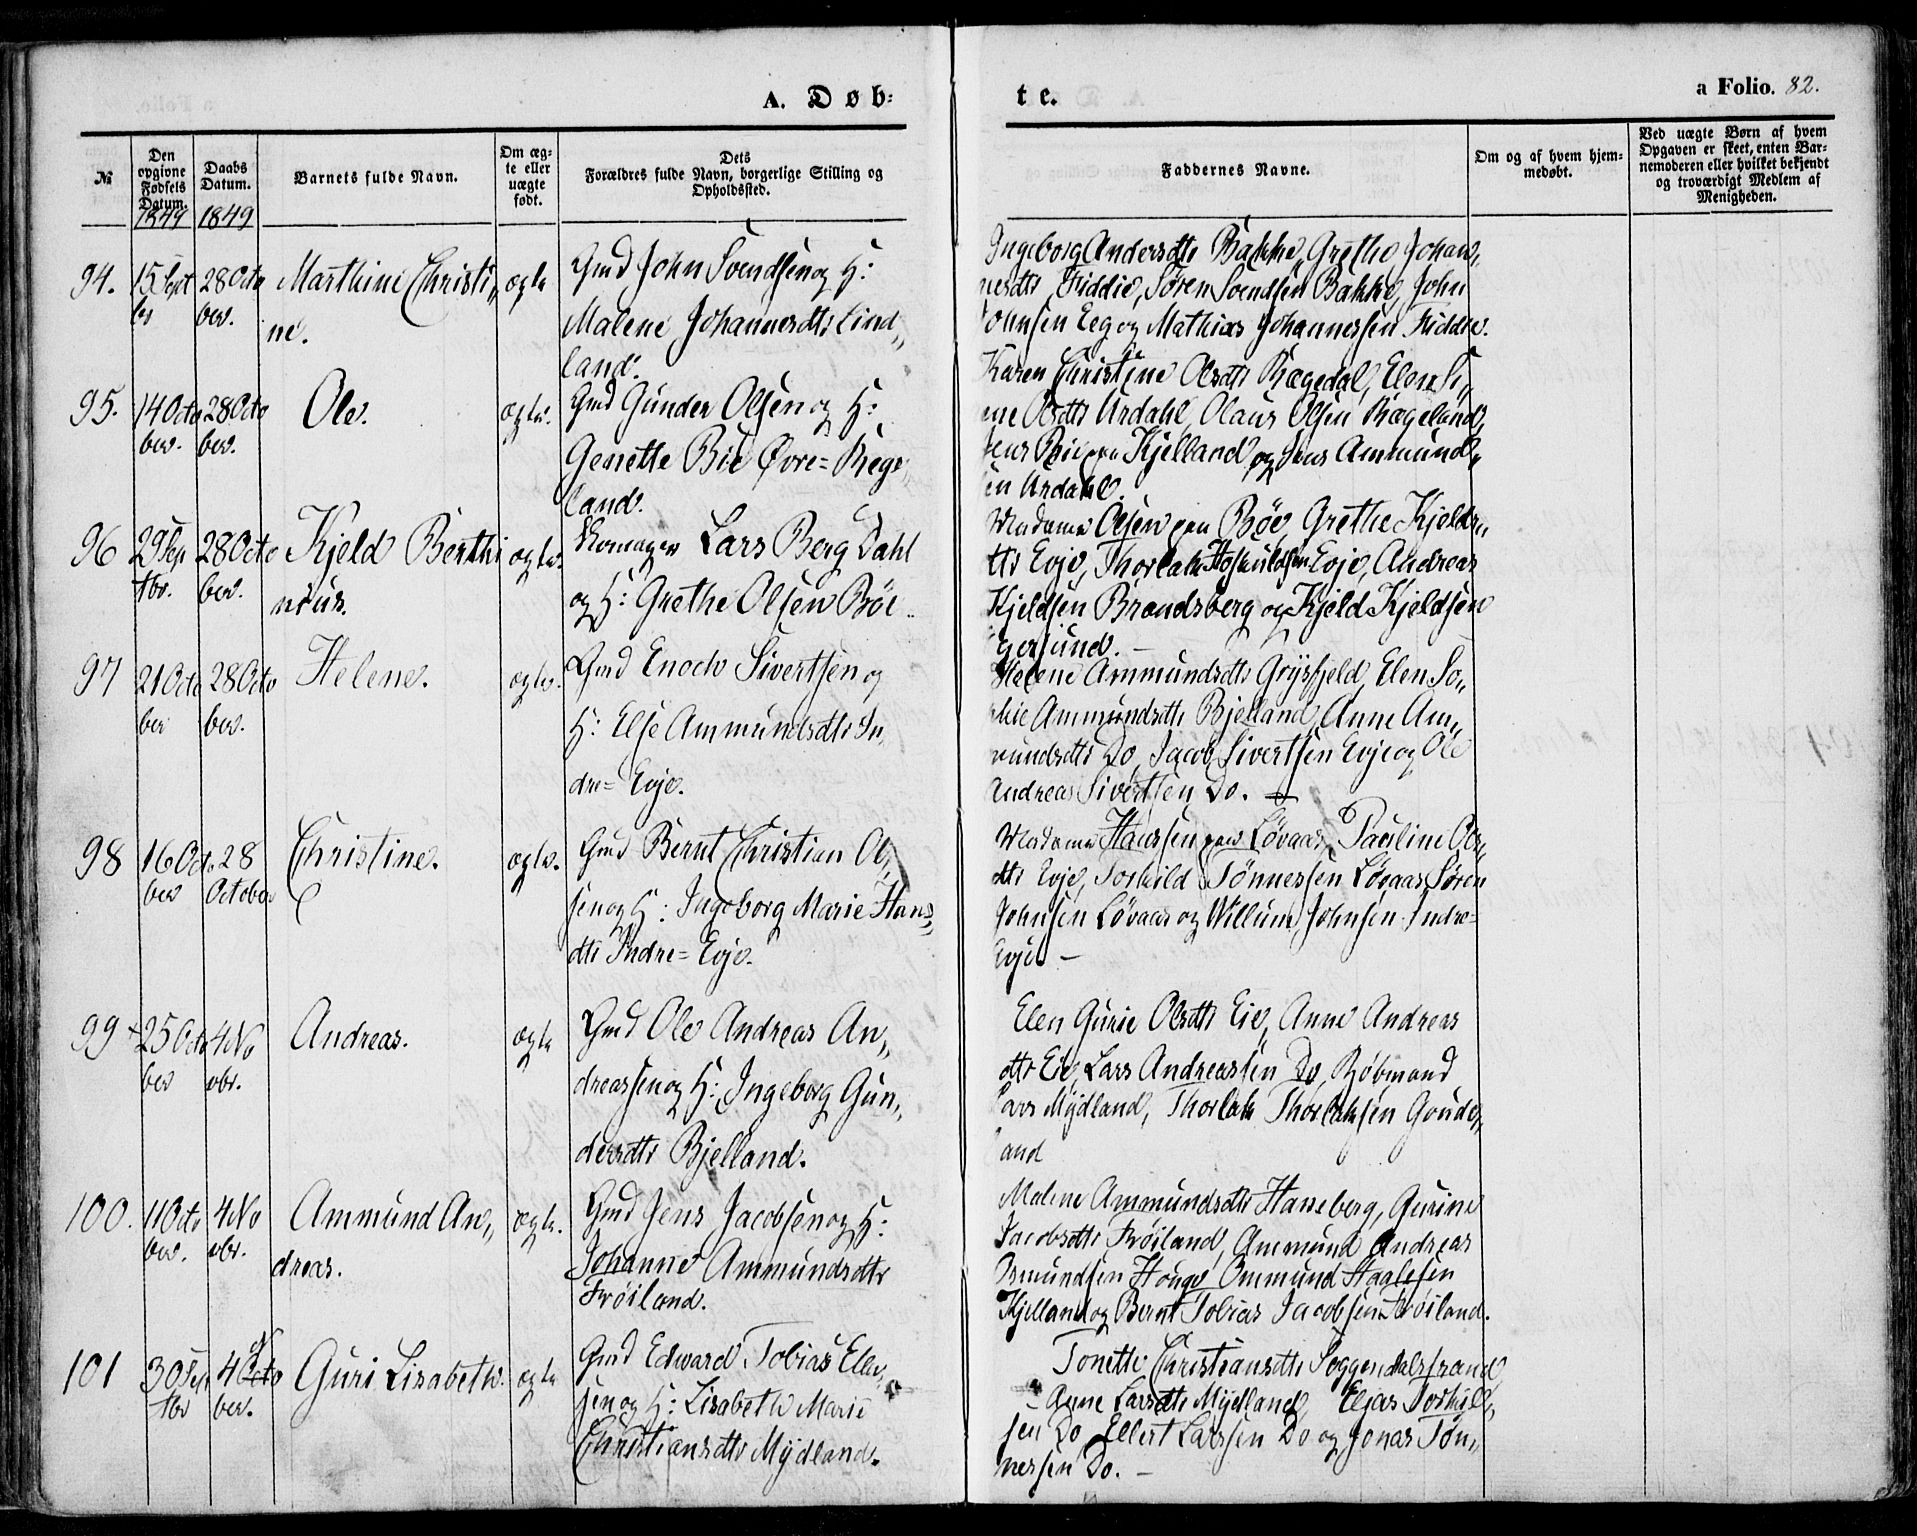 A. Døb:
te.
a Folio. 82.
№
Den opgivne Fødsels Datum.
Daabs Datum.
Barnets fulde Navn.
Om ægte eller uægte født.
Dets
Forældres fulde Navn, borgerlige Stilling og Opholdssted.
Faddernes Navne.
Om og af hvem hjemmedøbt.
Ved uægte Børn af hvem Opgaven er skeet, enten Barnemoderen eller hvilket bekjendt og troværdigt Medlem af Menigheden.
1849 1849
94. 15 Sept 28 Octo Marthine Christi„ ægte Gmd John Svendsen og H:
ber. ne. Malene Johannesdtr Lind„
land.
Ingeborg Andersdtr Bakke, Grethe Johan„
nesdtr Fiddie, Søren Svendsen Bakke, John
Johnsen Eeg og Mathias Johannessen Fiddie.
95. 14 Octo 28 Octo Ole. ægte. Gmd Gunder Olsen og H:
ber. ber. Genette Bie Øvre= Rege„
land.
Karen Christine Olsdtr Rægedal, Elen Si„
ne Olsdtr Urdahl, Olaus Olsen Rægeland,
Jens Kjelland og Jens Ammund„
sen Urdahl.
96 29 Sep 28 Octo Kjeld Berthi ægte. Skomager Lars Berg Dahl
tbr. ber. nius. og H: Grethe Olsen Böe
Madame Olsen paa Böe, Grethe Kjelds„
dtr Evje, Thorlak Hoskuldsen Evje, Andreas
Kjeldsen Brandsberg og Kjeld Kjeldsen
Egersund. —
97 21 Octo 28 Octo Helene. ægte. Gmd Enoch Sivertsen og
ber ber. H: Else Ammundsdtr In„
dre= Evje.
Helene Ammundsdtr Grysfjeld, Elen So„
phie Ammundsdtr Bjelland, Anne Am„
mundsdtr Do, Jacob Sivertsen Evje og Ole
Andreas Sivertsen Do. —
98 16 Octo 28 Christine. ægte. Gmd Bernt Christian Ol„
ber October sen og H: Ingeborg Marie Hans„
dtr Indre= Evje.
Madame Hanssen paa Løvaas, Pauline Ols„
dtr Evje, Torkild Tönnessen Løvaas, Søren
Johnsen Løvaas og Willum Johnsen Indre=
Evje —
99 + 25 Octo 4 No Andreas. ægte Gmd Ole Andreas An„
ber vbr. dreassen og H: Ingeborg Gun„
dersdtr Bjelland.
Elen Gurie Olsdtr Eie, Anne Andreas
dtr Eie, Lars Andreassen Do, Røbmand
Lars Mydland, Thorlak Thorlaksen Goude„
land
100. 11 Octo 4 No Ammund An„ ægte. Gmd Jens Jacobsen og H:
ber. vbr. dreas. Johanne Ammundsdtr
Fröiland.
Malene Ammundsdtr Hanneberg, Gurine
Jacobsdtr Fröiland, Ammund Andreas
Osmundsen Houge, Ommund Haalesen
Kjelland og Bernt Tobias Jacobsen Fröiland.
101 30 Sept 4 Octo Guri Lisabeth. ægte Gmd Edward Tobias Elen„
tbr ber. sen og H: Lisabeth Marie
Christiansdtr Mydland.
Tonette Christiansdtr Soggendalstrand,
Anne Larsdtr Mydland, Elias Torkjell„
sen Do, Ellert Larssen Do og Jonas Tön„
nessen Do. —